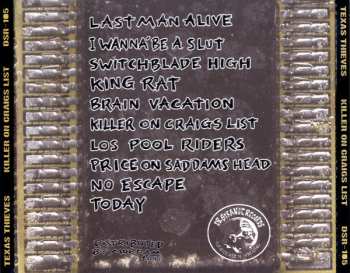 TEXAS THIEVES
KILLER ON CRAIGS LIST
DSR-105
LAST MAN ALIVE
I WANNA BE A SLUT
SWITCHBLADE HIGH
KING RAT
BRAIN VACATION
KILLER ON CRAIGS LIST
LOS POOL RIDERS
PRICE ON SADDAMS HEAD
NO ESCAPE
TODAY
DISTRIBUTED
BY
RECORDS
TEXAS THIEVES
KILLER ON CRAIGS LIST
DSR-105